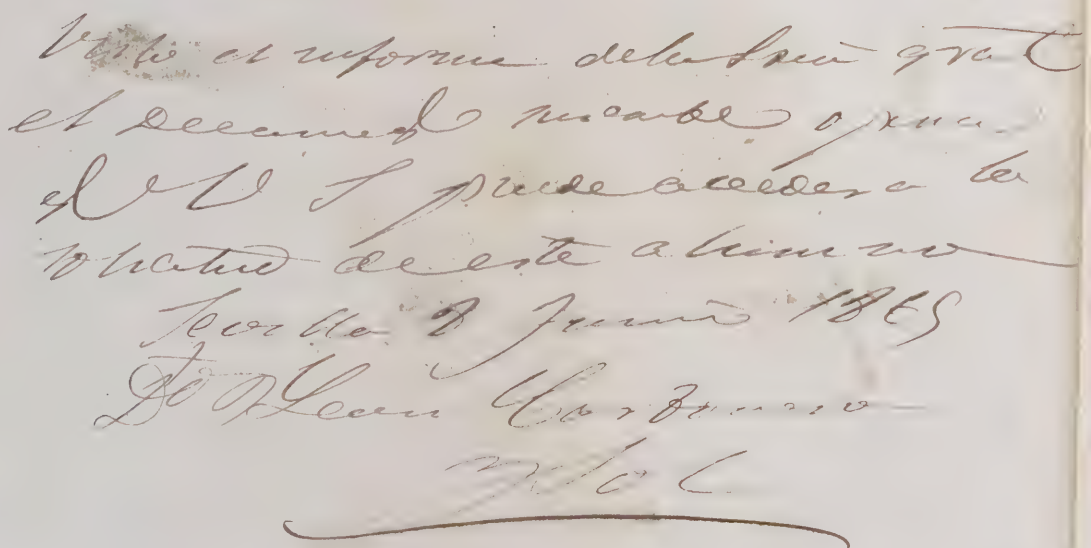 Visto el informe de la Sria gral
el Decano q.e suscribe opina
q.e V S puede acceder a la
solicitud de este alumno
Sevilla 7 Junio 1869
Dor Leon